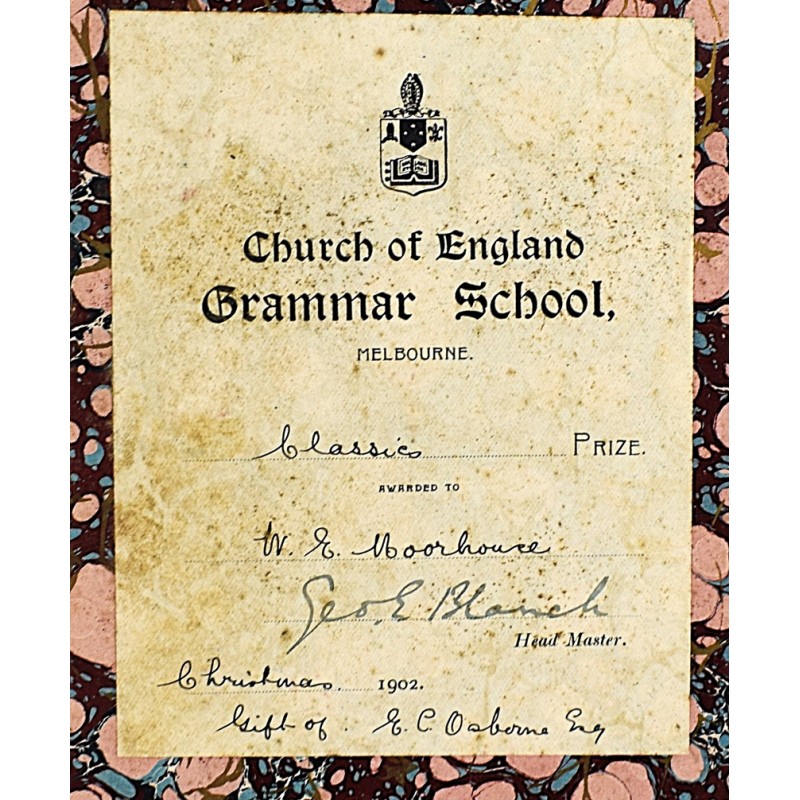 Church of England
Grammar School,
MELBOURNE.
Classics PRIZE.
AWARDED TO
W. E. Moorhouse
Geo. E Blanch
Head Master.
Christmas 1902.
Gift of. E. C. Osborne Esq